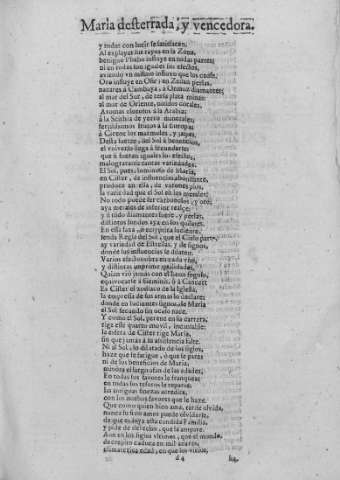 Maria desterrada, y vencedora.
y todas con lucir se satisfacen;
Al explayar sus rayos en la Zona,
benigno Phebo influye en todas partes;
ni en todas son iguales los efectos,
aviendo un mismo influxo que los cause.
Oro influye en Ofir; en Zeilan perlas,
nacares à Cambaya, à Ormuz diamantes;
al mar del Sur, de tersa plata minas
al mar de Oriente, nitidos corales.
Aromas à la Arabia;
à la Scithia de yerva minerales;
frutos à la Europa;
à Carcos los marmoles, y jaspes.
Desta suerte, del Sol à beneficios,
el universo llega à fecundarse
que à fueran iguales los efectos,
malograran tantas variedades.
El Sol, pues, luminoso de Maria,
en Cister, de influencias abundante,
produce en ella, de varones pios,
la variedad que el Sol en los metales.
No todo puede ser carbunclos, y oro;
aya metales de inferior realce;
y à todo diamantes fuera, y perlas,
distintos fondos aya en los quilates.
En esta faxa, ecryptica luciente,
senda Regia del Sol, que el Cielo parte,
ay variedad de Estrellas, y de signos,
donde sus influencias se dilaten.
Varios efectos obra en cada uno,
y distintas imprime qualidades,
Quien viò jamàs con el vario signo,
equivocarse à Geminis, ò à Cancer?
Es Cister el zodiaco de la Iglesia,
la empressa de sus armas lo declare;
donde en lucientes signos, de Maria
el Sol fecundo sin ocaso nace.
Y como el Sol, perene en su carrera,
rige este quarto movil, incansable;
la esfera de Cister rige Maria,
sin que jamàs à su assistencia falte.
Ni al Sol, lo dilatado de los siglos,
haze que se fatigue, ò que se pare;
ni de los beneficios de Maria,
minora el largo afan de las edades.
En todas sus favores le franquea;
en todas sus tesoros la reparte.
las antiguas finezas acredita,
con los nuevos favores que la haze.
Que como quien bien ama, tarde olvida,
nunca su fiel amor puede olvidarse,
de que es suya esta candida familia,
y pide de derecho, que la ampare.
Aun en los siglos ultimos, que el mundo,
de crespito caduca en mil azares,
climaterica edad; en que los vicios,
d 4
ha-